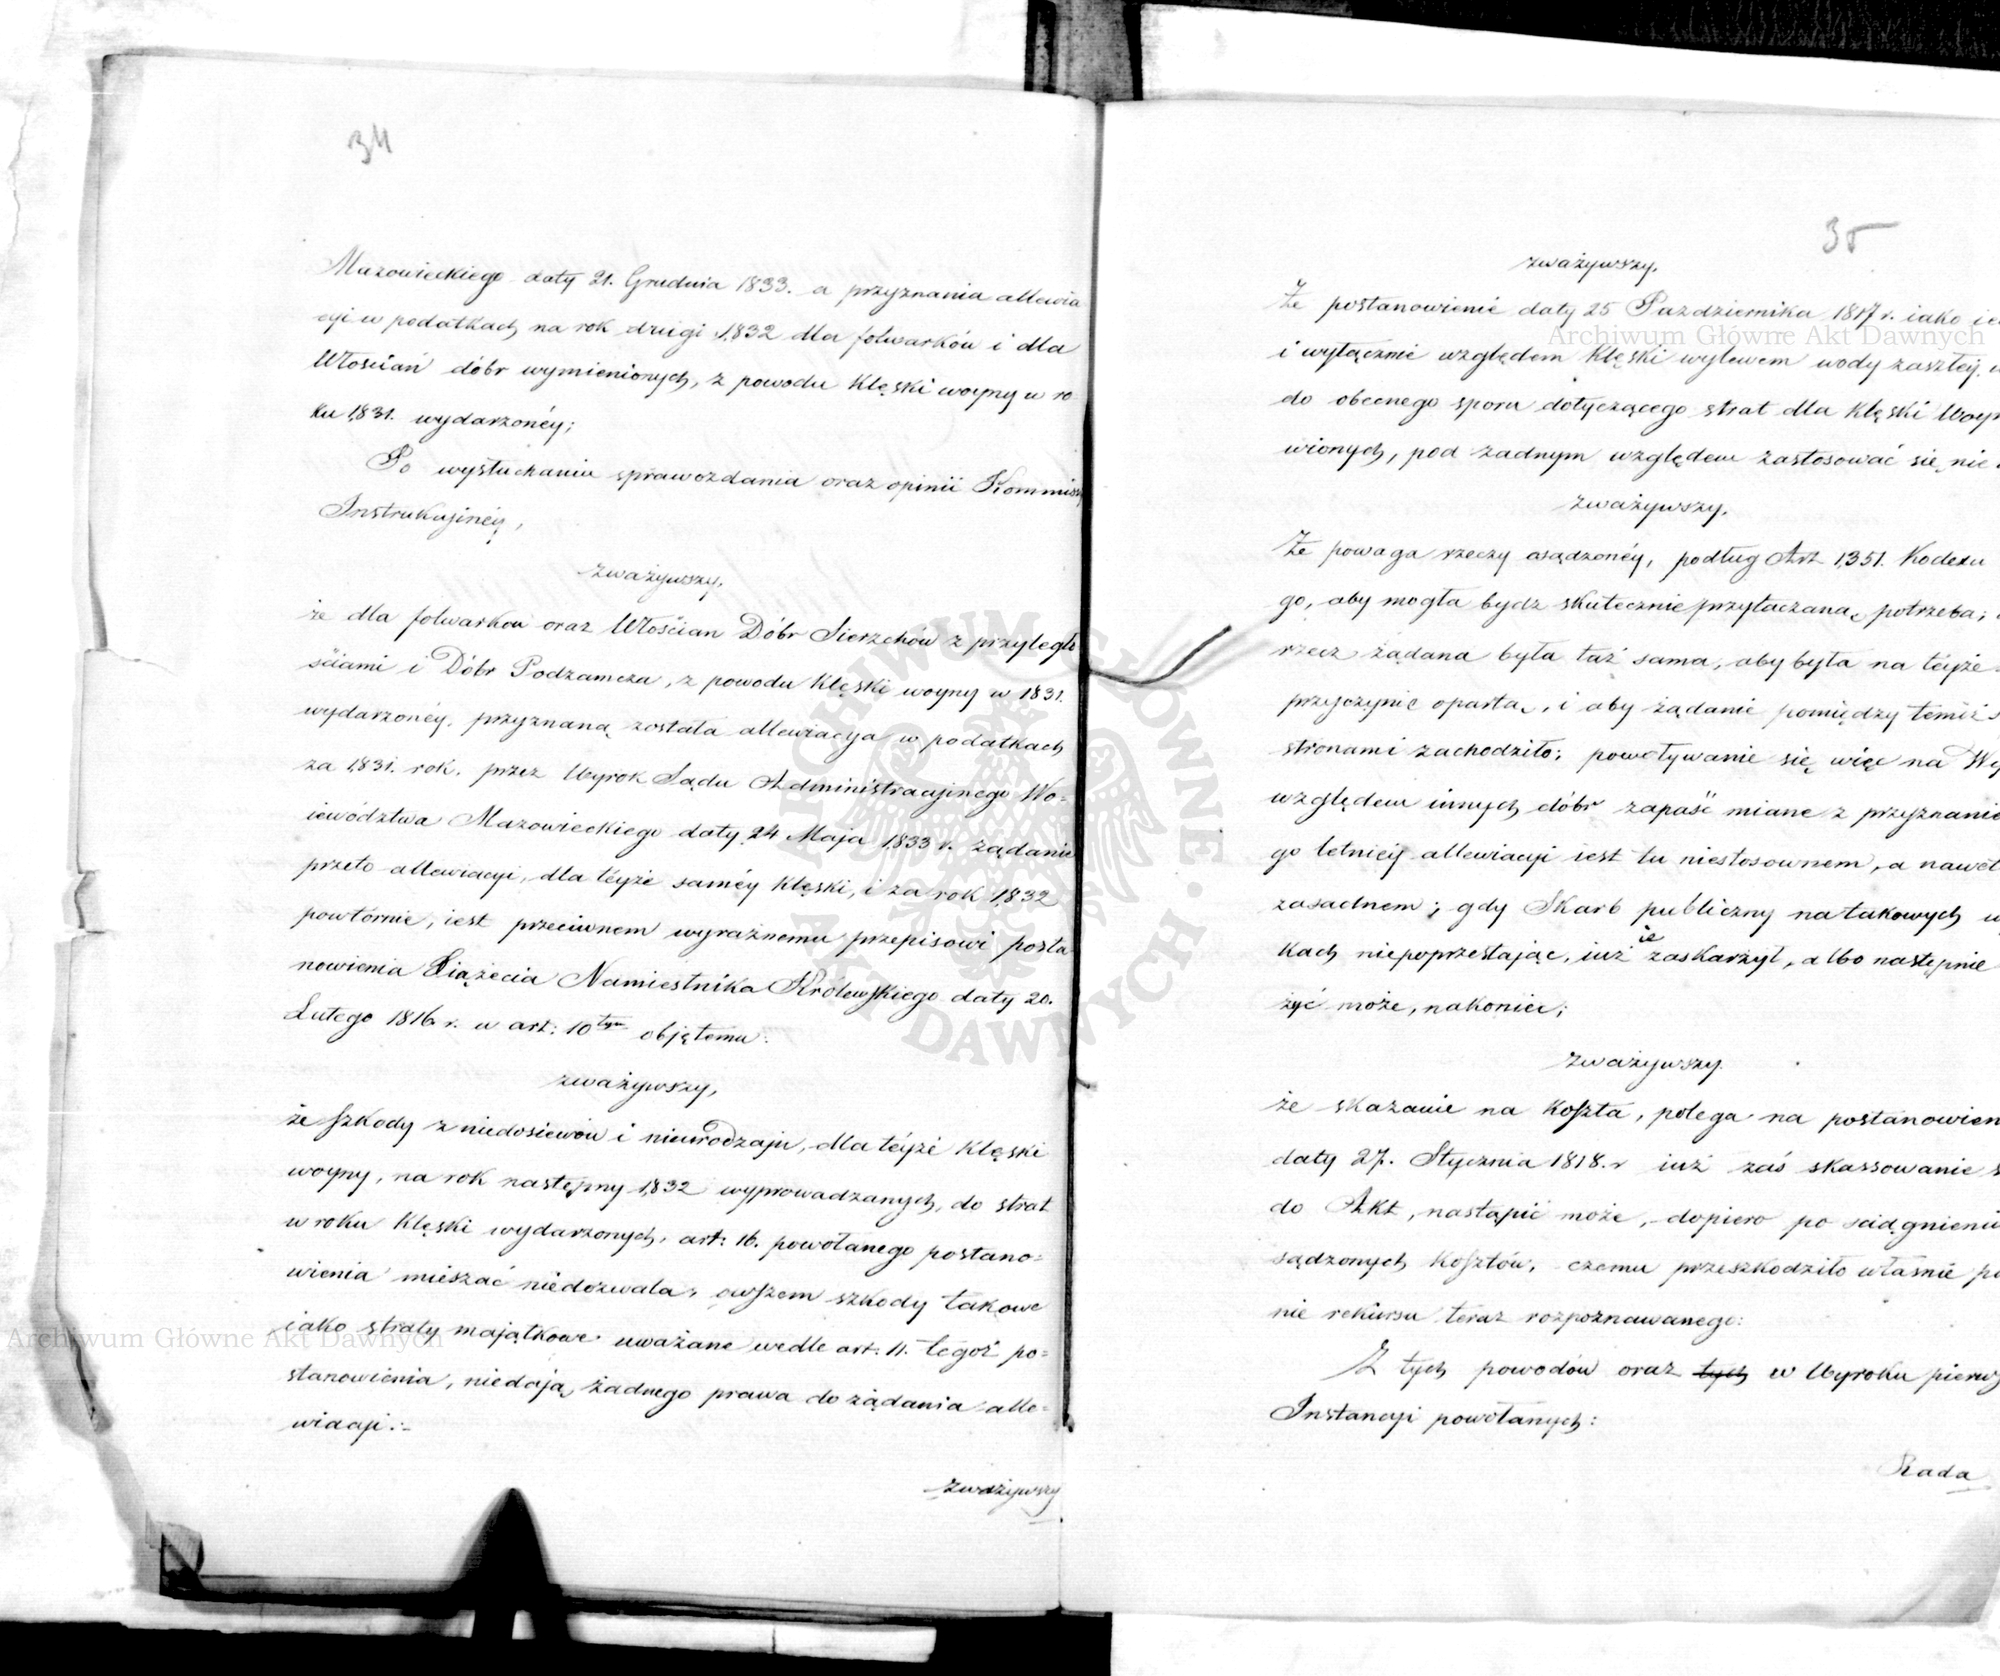 34
Mazowieckiego daty 21. Grudnia 1833. a przyznania allewia
cyi w podatkach na rok drugi 1832 dla folwarków i dla
Włościań dóbr wymienionych, z powodu Klęski woyny w ro
ku 1831. wydarzonéy;
Po wysłuchaniu sprawozdania oraz opinii Kommissyi
Instrukcyinéy,
zważywszy,
że dla folwarkow oraz Włościan Dóbr Sierzchów z przyległo
ściami i Dóbr Podzamcza, z powodu Klęski woyny w 1831.
wydarzonéy, przyznaną została allewiacya w podatkach
za 1831. rok. przez Wyrok Sądu Administracyinego Wo=
iewództwa Mazowieckiego daty 24 Maja 1833 r. żądanie
przeto allewiacyi, dla téyże saméy Klęski, i za rok 1832
powtórnie, iest przeciwnem wyraźnemu przepisowi posta
nowienia Xiążecia Namiestnika Królewskiego daty 20.
Lutego 1816 r. w art: 10tym objętemu:
zważywszy,
że szkody z niedosiewów i nieurodzaju, dla téyże Klęski
woyny, na rok następny 1832 wyprowadzanych, do strat
w roku Klęski wydarzonych, art: 16. powołanego postano=
wienia mieszać niedozwala, owszem szkody takowe
iako straty majątkowe uważane wedle art: 11. tegoż po=
stanowienia, niedają żadnego prawa do żądania alle=
wiacyi:-
zważywszy
35
zważywszy,
Że postanowienie daty 25 Pazdziernika 1817 r. iako
i wyłącznie względem Klęski wylewem wody zaszłéy,
do obecnego sporu dotyczącego strat dla Klęski
wionych, pod żadnym względem zastosować się nie
zważywszy,
Że powaga rzeczy osądzonéy, podług Art 1351. Kodexu
go, aby mogła bydz skutecznie przytaczaną, potrzeba;
rzecz żądana była taż sama, aby była na téyże
przyczynie opartą, i aby żądanie pomiędzy temiż
stronami zachodziło; powoływanie się więc na
względem innych dóbr zapaść miane z przyznanie
go letniéy allewiacyi iest tu niestosownem, a nawet
zasadnem; gdy Skarb publiczny na takowych
kach niepoprzestając, iuż ie zaskarżył, albo następnie
żyć może, nakoniec;
zważywszy
że skazanie na koszta, polega na postanowien
daty 27. Stycznia 1818. r iuż zaś skassowanie
do Akt, nastąpić może, dopiero po sciągnieniu
sądzonych kosztów, czemu przeszkodziło własnie
nie rekursu teraz rozpoznawanego:
Z tych powodów oraz tych w Wyroku pierwsz
Instancyi powołanych:
Rada
Archiwum Główne Akt Dawnych
Archiwum Główne Akt Dawnych
ARCHIWUM GŁÓWNE AKT DAWNYCH